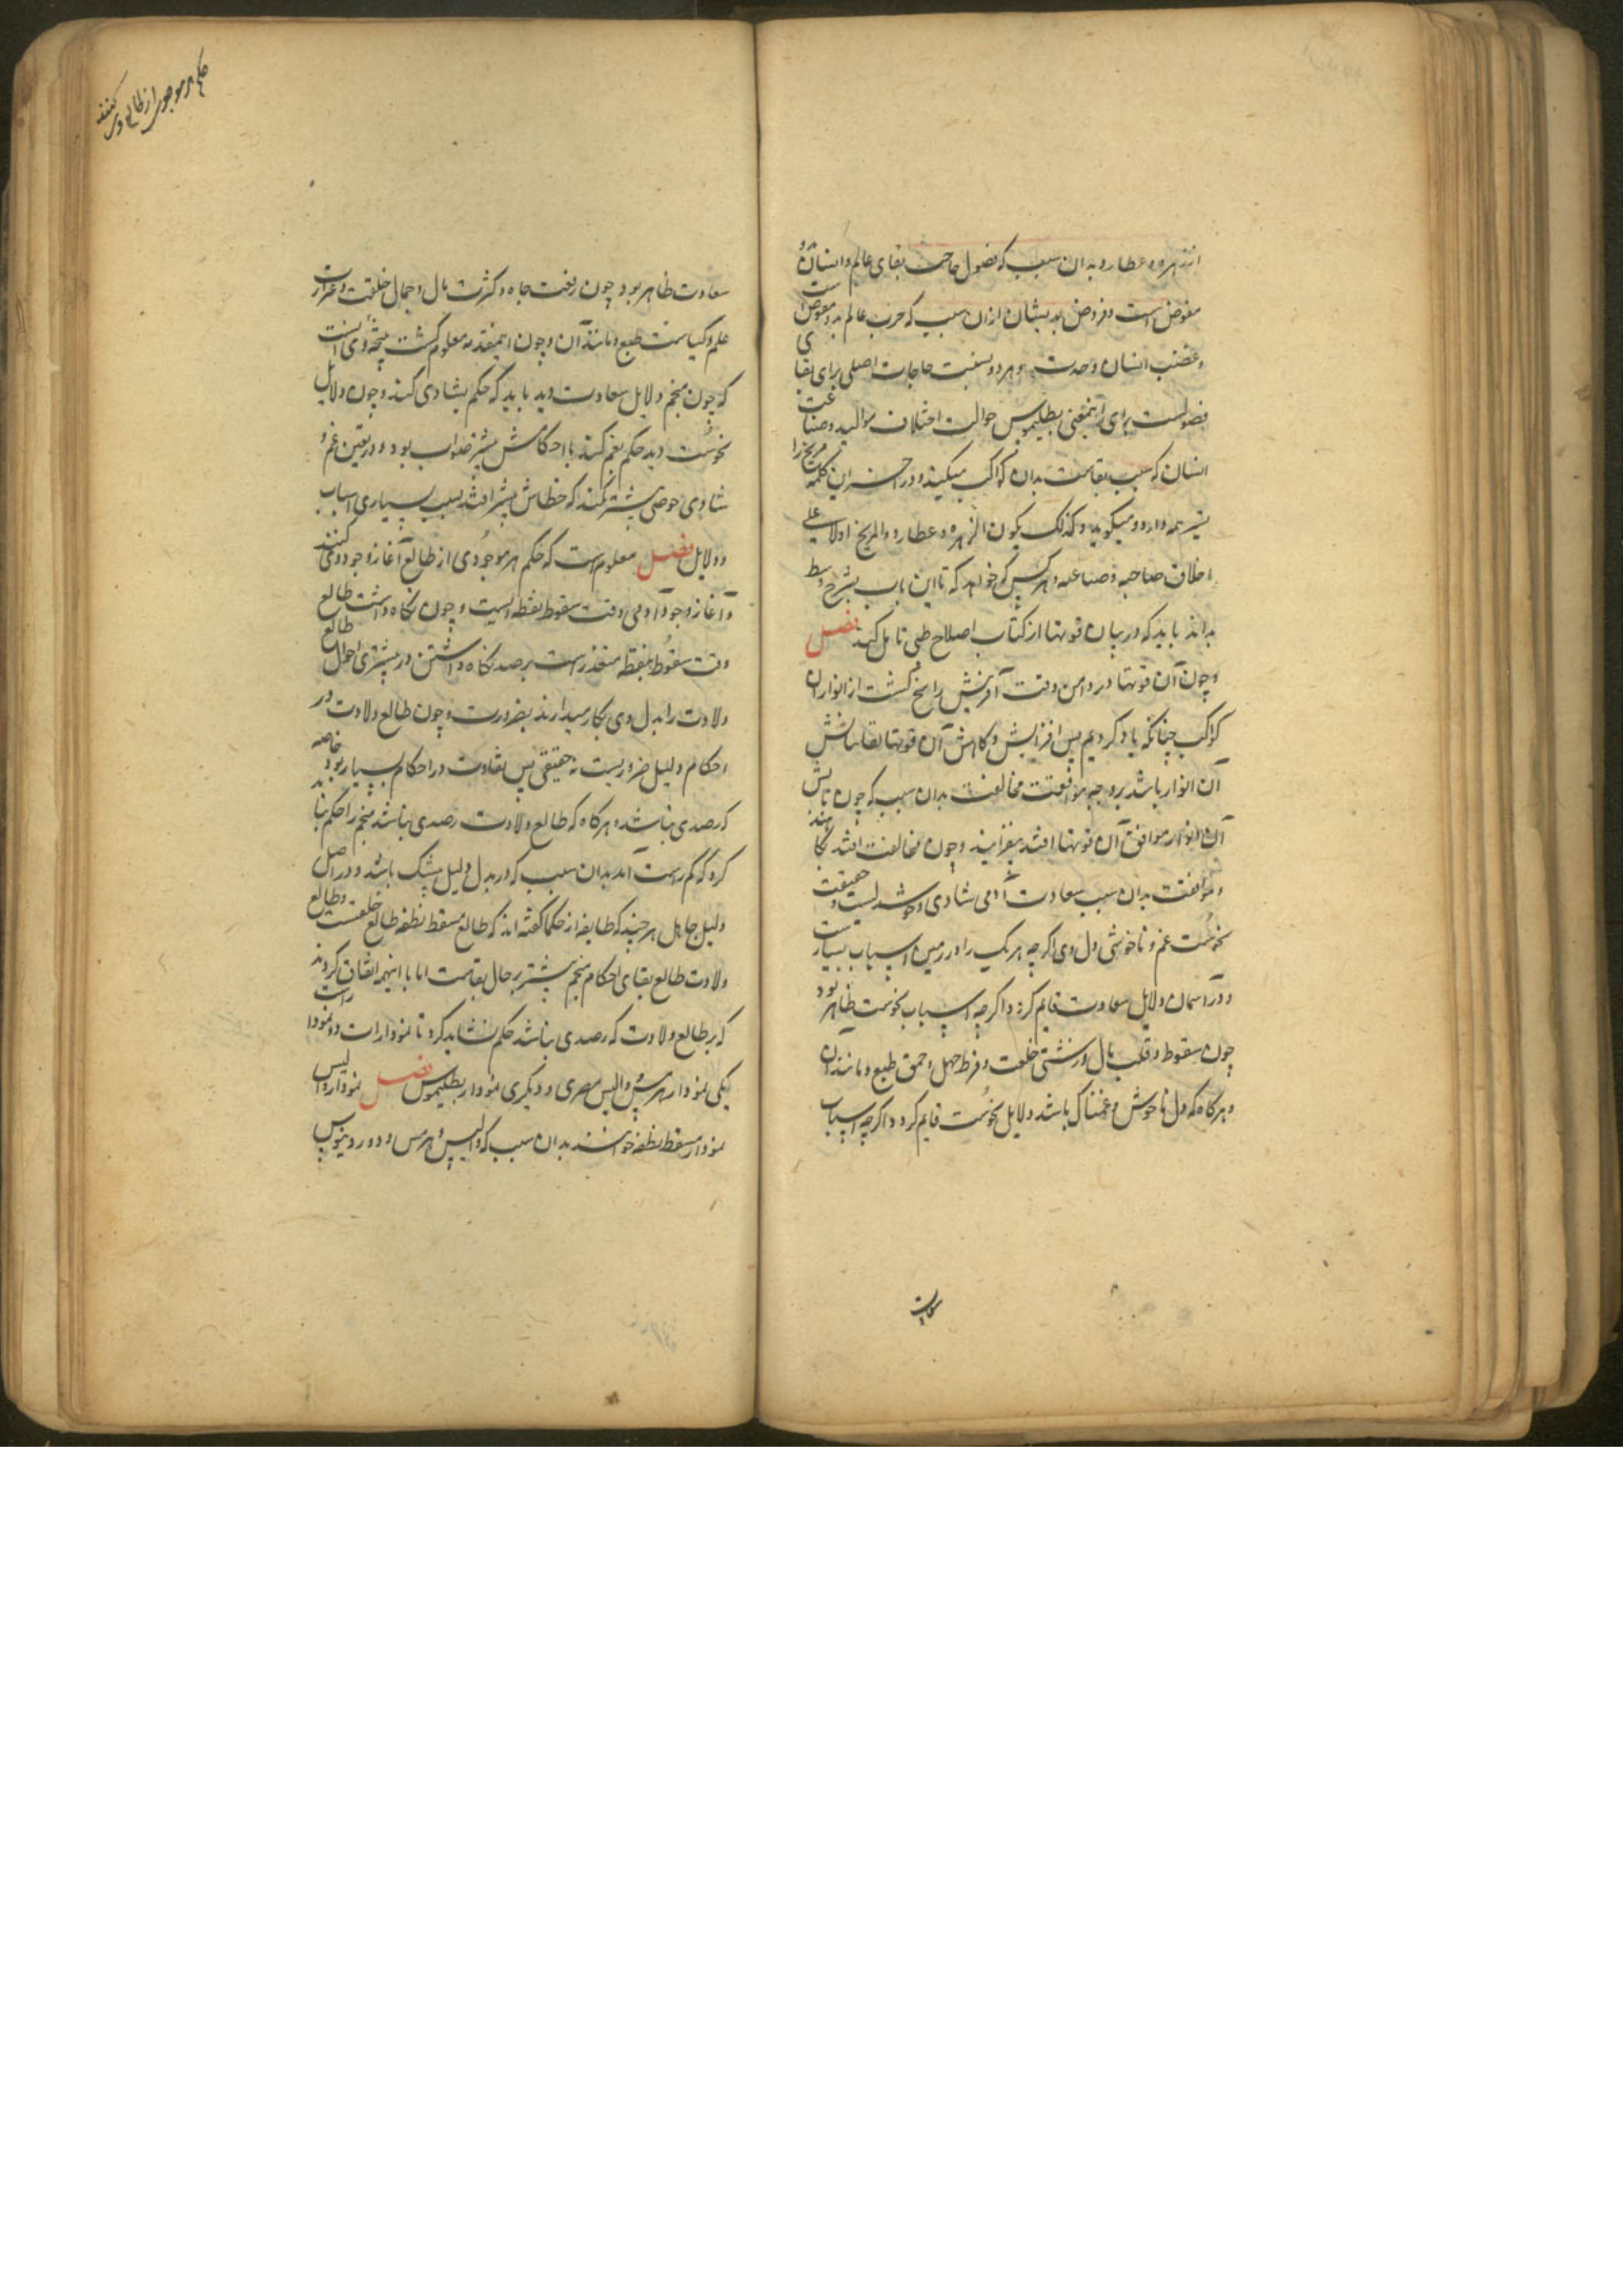 از زهره و عطارد بدان سبب که فضول حاجت بقای عالم و انسان بدو
مفوض است و فروض بدیشان ازان سبب که حرب عالم بدو مفوض است
و غضب انسان و حدت وی و هر دو بنسبت حاجات اصلی برای بقا
فضولست برای اینمعنی بطلیموس حوالت اختلاف موالید و صناعت
انسان که سبب بقاست بدان کواکب میکند و در آخر این کلمه مریخ را
نیز همه دارد و میگوید و کذلک یکون الزهره و عطارد و المریخ ادلاء علی
اخلاق صاحبه و صناعته و هر کس که خواهد که تا این باب بشرح و بسط
بداند باید که در بیان قوتها از کتاب اصلاح طبی تامل کند فصل
و چون آن قوتها در دامن وقت آفرینش راسخ گشت از انوار آن
کواکب چنانکه یاد کردیم پس افزایش و کاهش آن قوتها بقا تابش
آن انوار باشد بر وجه موافقت مخالفت بدان سبب که چون تابش
آن انوار موافق آن قوتها افتد بیفزایند و چون مخالفت افتد بکاهند
و موافقت بدان سبب سعادت آدمی شادی و خوشدلیست و حقیقت
نحوست غم و ناخوشی دل وی اگرچه هر یک را در زمین اسباب بسیارست
و در آسمان دلایل سعادت قایم کرد و اگرچه اسباب نحوست ظاهر بود
چون سقوط و قلت مال و زشتی خلعت و فرط جهل و حمق طبع و مانند آن
و هرگاه که دل ناخوش و غمناک باشد دلایل نحوست قایم کرد و اگرچه اسباب
سعادت
حکم هر موجودی از طالع وی کنند
سعادت ظاهر بود چون رفعت جاه و کثرت مال و جمال خلقت و غزارت
علم و کیاست طبع و مانند آن و چون اینمقدمه معلوم گشت نتیجه وی آنست
که چون منجم دلایل سعادت دید باید که حکم بشادی کند و چون دلایل
نحوست دید حکم بغم کند تا احکامش بیشتر صواب بود و در تعین غم و
شادی خوضی بیشتر نکند که خطاش بیشتر افتد بسبب بسیاری اسباب
و دلایل فصل معلوم است که حکم هر موجودی از طالع آغاز وجود وی کنند
و آغاز وجود آدمی وقت سقوط نقطه ایست و چون نگاه داشت طالع
وقت سقوط نقطه متعذر است برصد نگاه داشتن در بیشتری احوال طالع
ولادت را بدل وی بکار میدارند بضرورت و چون طالع ولادت در
احکام دلیل ضروریست نه حقیقی پس تفاوت در احکام بسیار بود خاصه
که رصدی نباشد و هرگاه که طالع ولادت رصدی نباشد منجم را حکم نباید
کرد که کم راست آید بدان سبب که در بدل دلیل بیشک باشد و در اصل
دلیل جاهل هر چند که طایفه از حکما گفته اند که طالع مسقط نطفه طالع خلعتست و طالع
ولادت طالع بقای احکام منجم بیشتر بر حال بقاست اما با اینهمه اتفاق کردند
که بر طالع ولادت که رصدی نباشد حکم نشاید کرد تا نمودارات و دو نمودار است
یکی نمودار هرمس و والیس مصری و دیگری نمودار بطلیموس فصل نمودار والیس
نمودار مسقط نطفه خوانند بدان سبب که والیس و هرمس و دوروتیوس